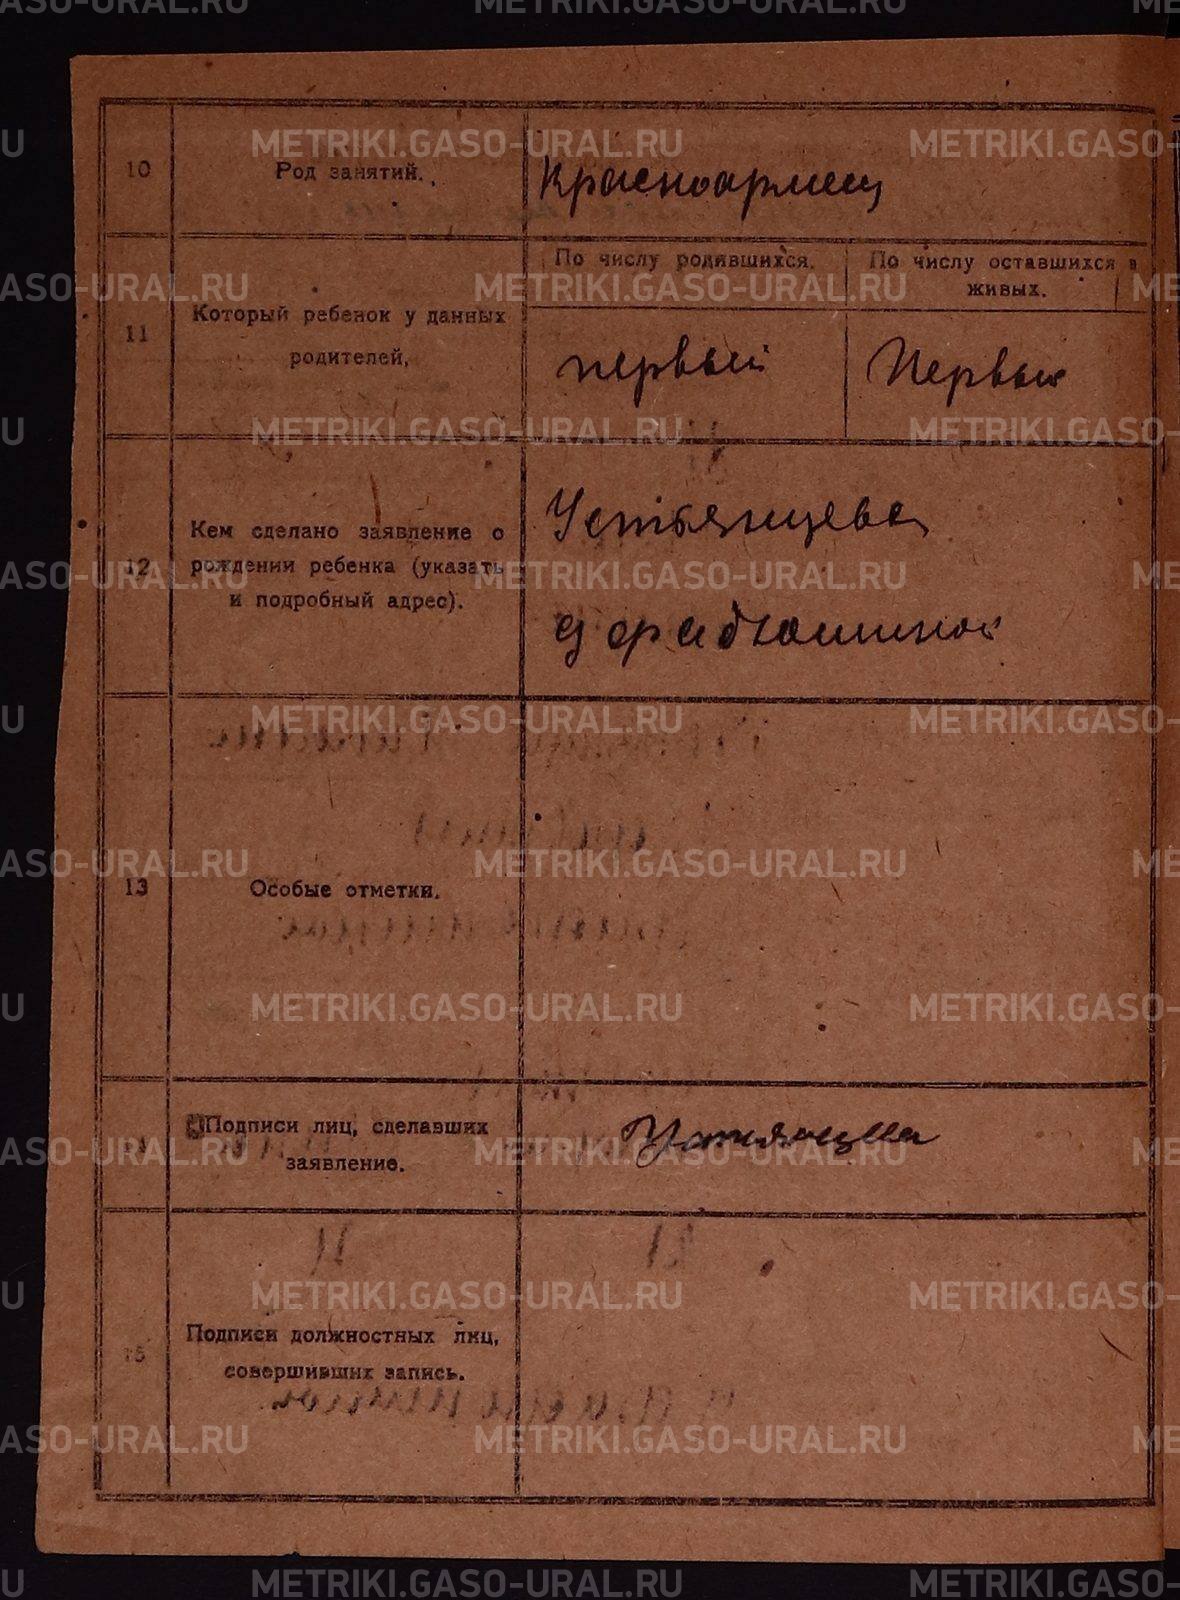 10
Род занятий.
Красноармеец
11
Который ребенок у данных
родителей,
По числу родившихся.
По числу оставшихся в
живых.
первый
Первый
12
Кем сделано заявление о
рождении ребенка (указать
и подробный адрес).
Устьянцева
13
Особые отметки.
Подписи лиц, сделавших
заявление.
Устьянцева
15
Подписи должностных лиц,
совершивших запись.
METRIKI.GASO-URAL.RU